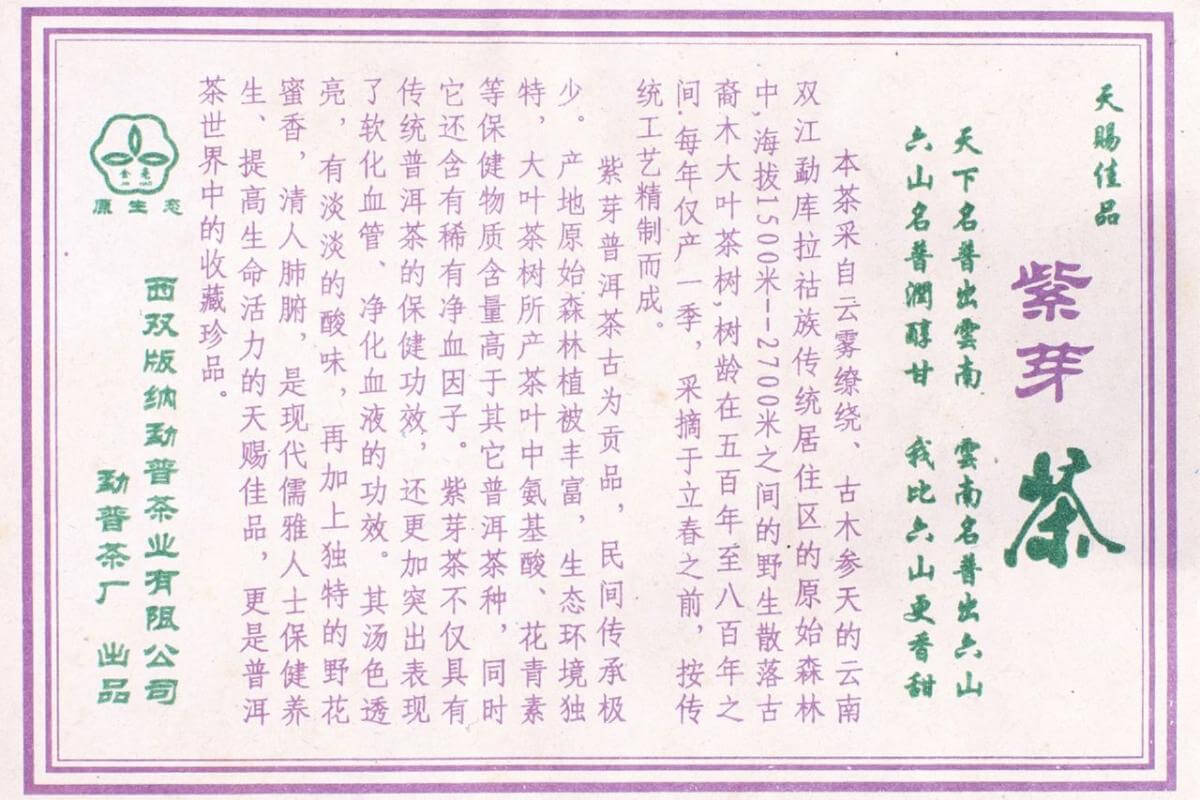 天賜佳品
紫芽茶
天下名普出雲南 雲南名普出六山
六山名普潤醇甘 我比六山更香甜
本茶采自云雾缭绕、古木参天的云南
双江勐库拉祜族传统居住区的原始森林
中,海拔1500米--2700米之间的野生散落古
裔木大叶茶树,树龄在五百年至八百年之
间.每年仅产一季，采摘于立春之前，按传
统工艺精制而成。
紫芽普洱茶古为贡品，民间传承极
少。产地原始森林植被丰富，生态环境独
特，大叶茶树所产茶叶中氨基酸、花青素
等保健物质含量高于其它普洱茶种，同时
它还含有稀有净血因子。紫芽茶不仅具有
传统普洱茶的保健功效，还更加突出表现
了软化血管、净化血液的功效。其汤色透
亮，有淡淡的酸味，再加上独特的野花
蜜香，清人肺腑，是现代儒雅人士保健养
生、提高生命活力的天赐佳品，更是普洱
茶世界中的收藏珍品。
原生态
西双版纳勐普茶业有限公司
勐普茶厂 出品